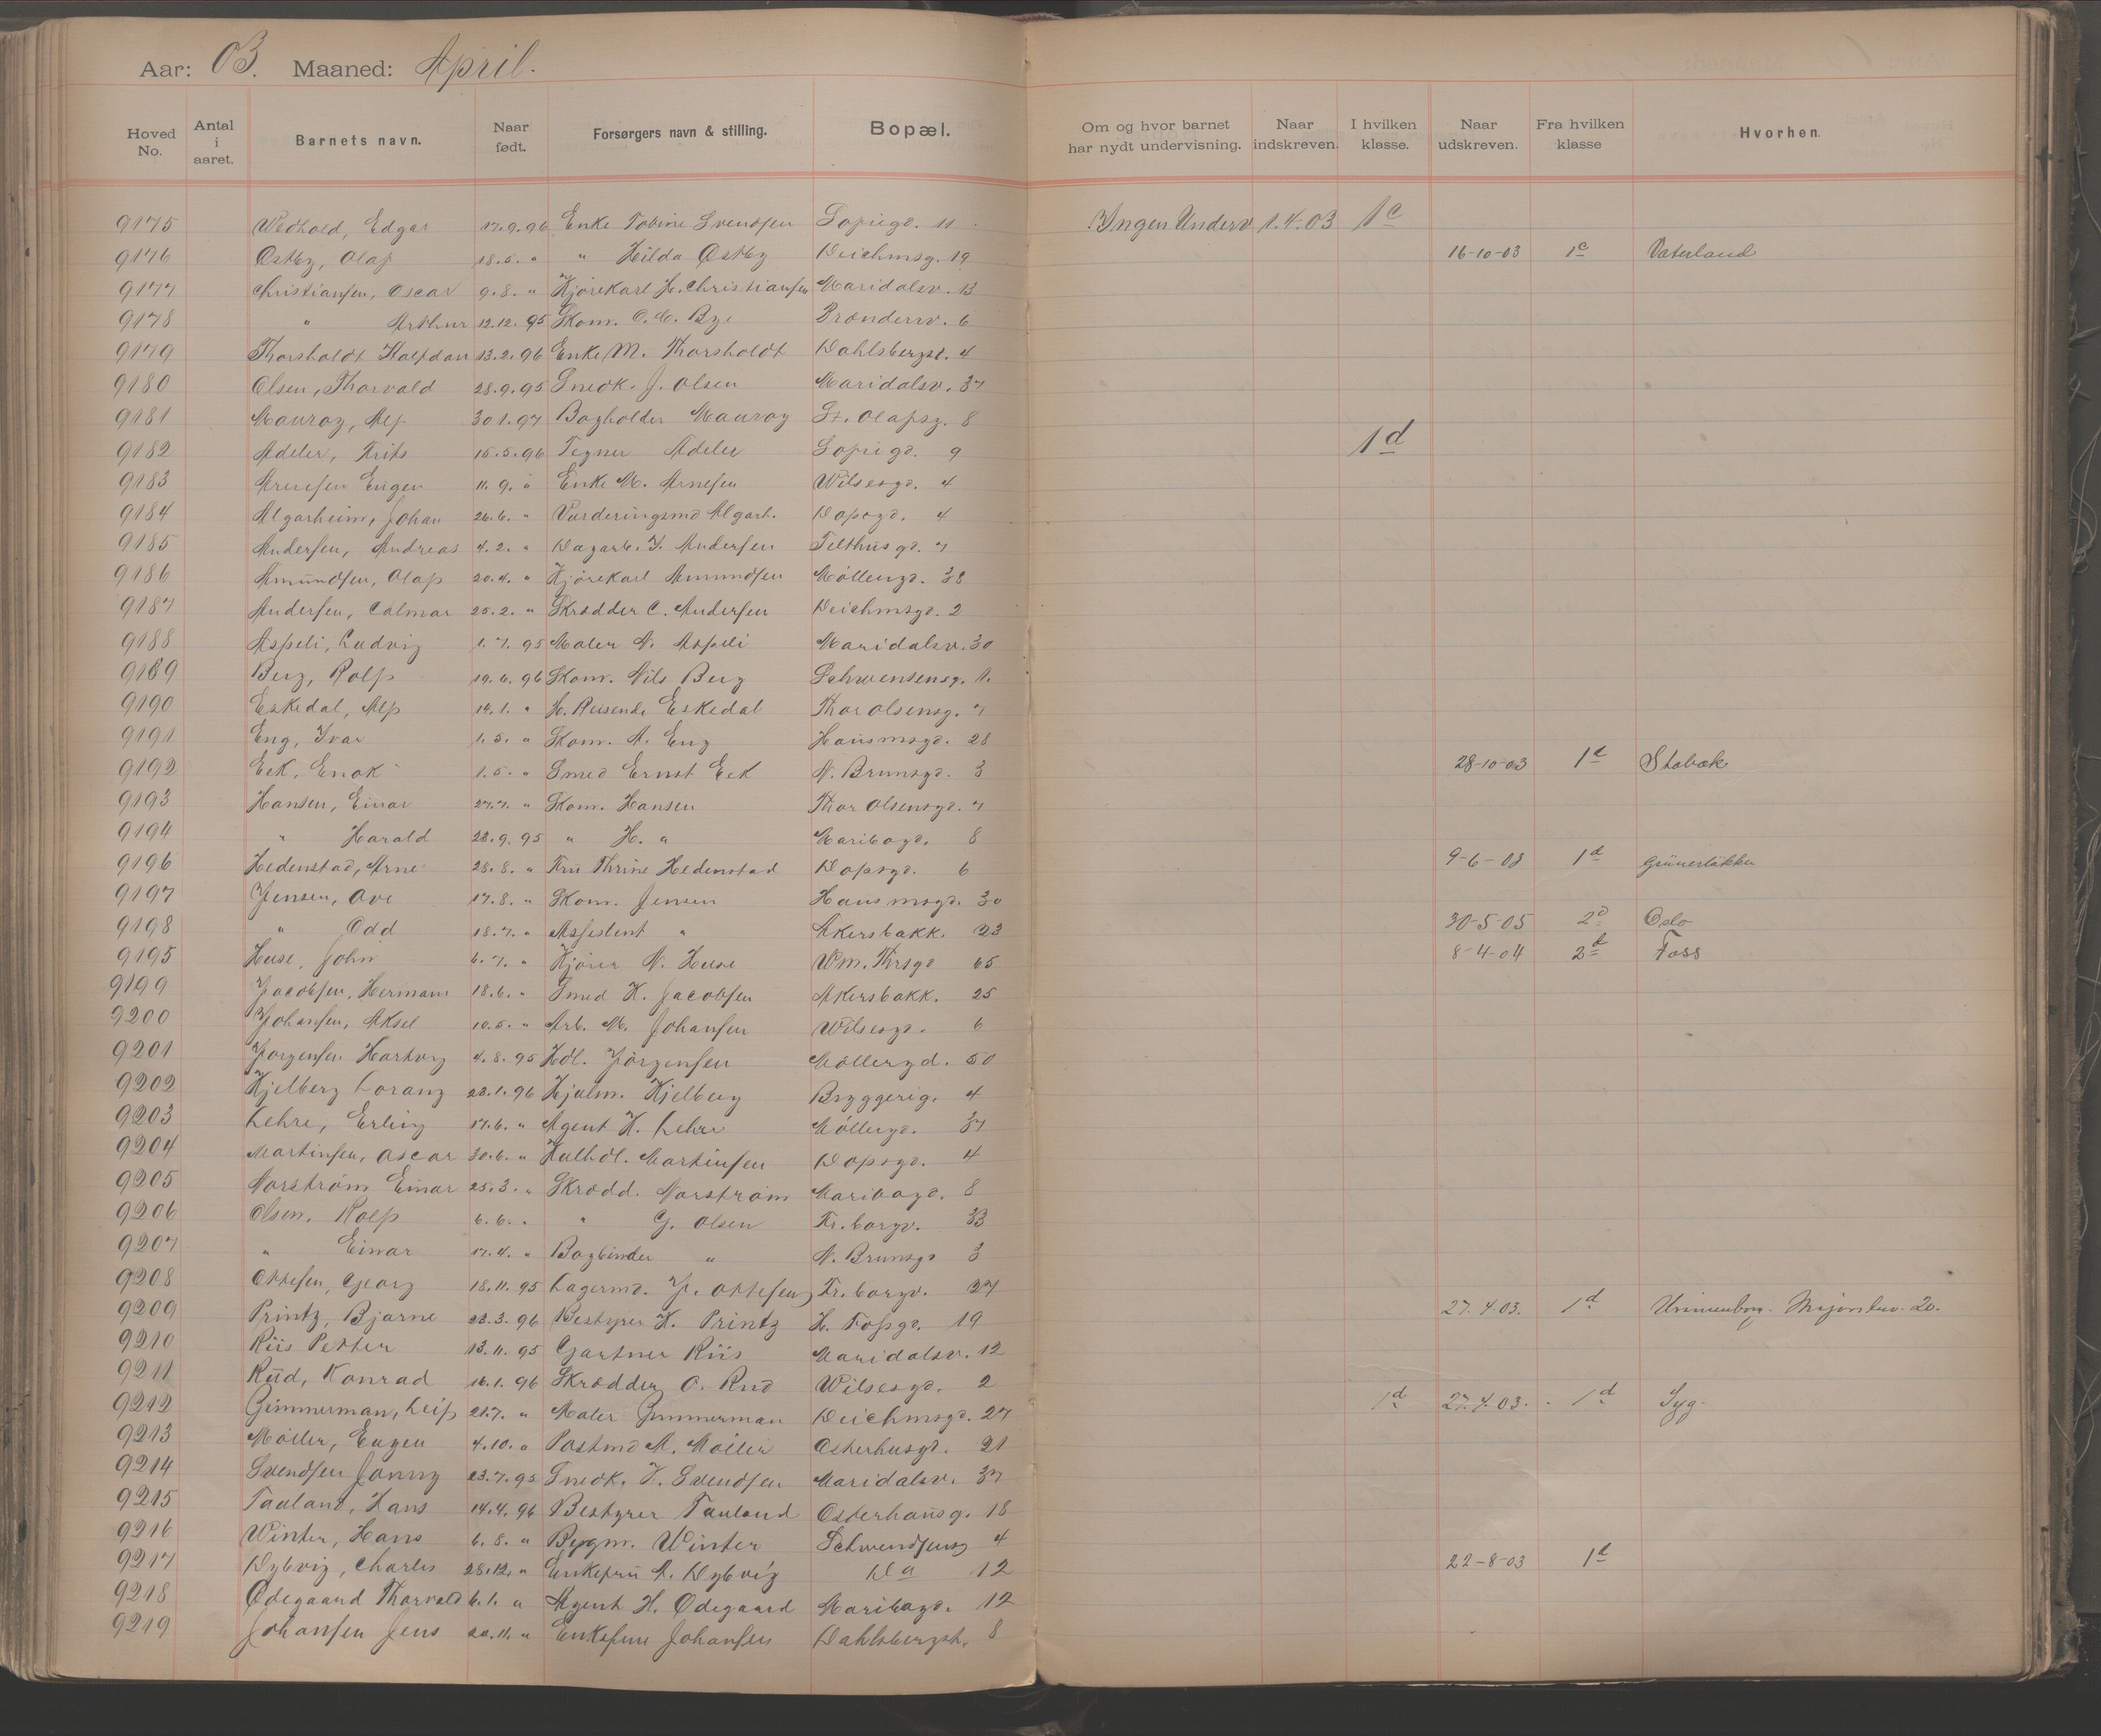 Aar: 03. Maaned: April.
Hoved No. Antal i aaret. Barnets navn. Naar født. Forsørgers navn & stilling. Bopæl. Om og hvor barnet har nydt undervisning. Naar indskreven. I hvilken klasse. Naar udskreven. Fra hvilken klasse Hvorhen.
9175 Wedhold, Edgar 17.9.96 Enke Tobine Svendsen Sofiegd. 11 Ingen Underv 1.4.03 1c
9176 Østby, Olaf 18.5. " " Hilda Østby Deichmsg. 19 16-10-03 1c Vaterland
9177 Christiansen, Oscar 9.8. " Kjørekarl H. Christiansen Maridalsv. 13
9178 " Arthur 12.12.95 Skom. O. C. Bye Brænderiv. 6
9179 Thorsholdt Halfdan 13.2.96 Enke M. Thorsholdt Dahlsbergst. 4
9180 Olsen, Thorvald 28.9.95 Snedk. J. Olsen Maridalsv. 37
9181 Mauroy, Alf 30.1.97 Bogholder Mauroy St. Olafsg. 8
9182 Adeler, Frits 15.5.96 Tegner Adeler Sofiegd. 9 1d
9183 Arnesen Eugen 11.9. " Enke M. Arnesen Wilsesgd. 4
9184 Algarheim, Johan 26.6. " Vurderingsmd Algarh. Dopsgd. 4
9185 Andersen, Andreas 4.2. " Dagarb. J. Andersen Telthusgd. 7
9186 Amundsen, Olaf 20.4. " Kjørekarl Amundsen Møllergd. 38
9187 Andersen, Calmar 25.2. " Skrædder C. Andersen Deichmsgd. 2
9188 Aspeli, Ludvig 1.7.95 Maler N. Aspeli Maridalsv. 30
9189 Berg, Rolf 19.6.96 Skom. Nils Berg Schwensensg. 1.
9190 Eskedal, Alf 14.1. " H. Reisende Eskedal Thor Olsensg. 7
9191 Eng, Ivar 1.5. " Skom. A. Eng Hausmsgd. 28
9192 Eek, Enok 1.5. " Smed Ernst Eek N. Brunsgd. 3 28-10-03 1d Stabæk
9193 Hansen, Einar 27.7. " Skom. Hansen Thor Olsensgd. 7
9194 " Harald 28.9.95 " H. " Maribogd. 8
9196 Hedenstad, Arne 28.8. " Fru Thrine Hedenstad Dopsgd. 6 9-6-03 1d Grünerløkka
9197 Jensen, Ove 17.8. " Skom. Jensen Hausmsgd. 30
9198 " Odd 18.7. " Assistent " Akersbakk. 23 30-5-05 2d Oslo
9195 Huse, John 6.7. " Kjører N. Huse Wm. Thrsgd 65 8-4-04 2d Foss
9199 Jacobsen, Hermann 18.6. " Smed K. Jacobsen Akersbakk. 25
9200 Johansen, Aksel 10.5. " Arb. M. Johansen Wilsesgd. 6
9201 Jørgensen Hartvig 4.8.95 Hdl. Jørgensen Møllergd. 50
9202 Kjelberg Lorang 28.1.96 Hjalm. Kjelberg Bryggerig. 4
9203 Lehre, Erling 17.6. " Agent K. Lehre Møllergd. 37
9204 Martinsen, Oscar 30.6. " Kulhdl. Martinsen Dopsgd. 4
9205 Norstrøm Einar 25.3. " Skrædd. Norstrøm Maribogd. 8
9206 Olsen, Rolf 6.6. " " G. Olsen Fr.borgv. 33
9207 " Einar 17.4. " Bogbinder " N. Brunsgd 3
9208 Ottesen, Georg 18.11.95 Lagermd. J. Ottesen Fr.borgv. 27
9209 Printz, Bjarne 22.3.96 Bestyrer K. Printz H. Fossgd. 19 27.4.03. 1d
9210 Riis Petter 13.11.95 Gartner Riis Maridalsv. 12
9211 Rud, Konrad 16.1.96 Skrædder O. Rud Wilsesgd. 2
9212 Zimmerman, Leif 21.7. " Maler Zimmerman Deichmsgd. 27 1d 27.4.03. 1d Syg.
9213 Møller, Eugen 4.10. " Postmd M. Møller Osterhusgd. 21
9214 Svendsen Jonny 23.7.95 Snedk. J. Svendsen Maridalsv. 37
9215 Tauland, Hans 14.4.96 Bestyrer Tauland Osterhausg. 18
9216 Winter, Hans 6.8. " Bygm. Winter Schwendsensg 4
9217 Dybvig, Charles 28.12. " Enkefru A. Dybvig Do 12 22-8-03 1d
9218 Ødegaard Thorvald 6.1. " Agent H. Ødegaard Maribogd. 12
9219 Johansen Jens 20.11. " Enkefrue Johansen Dahlsbergst. 8